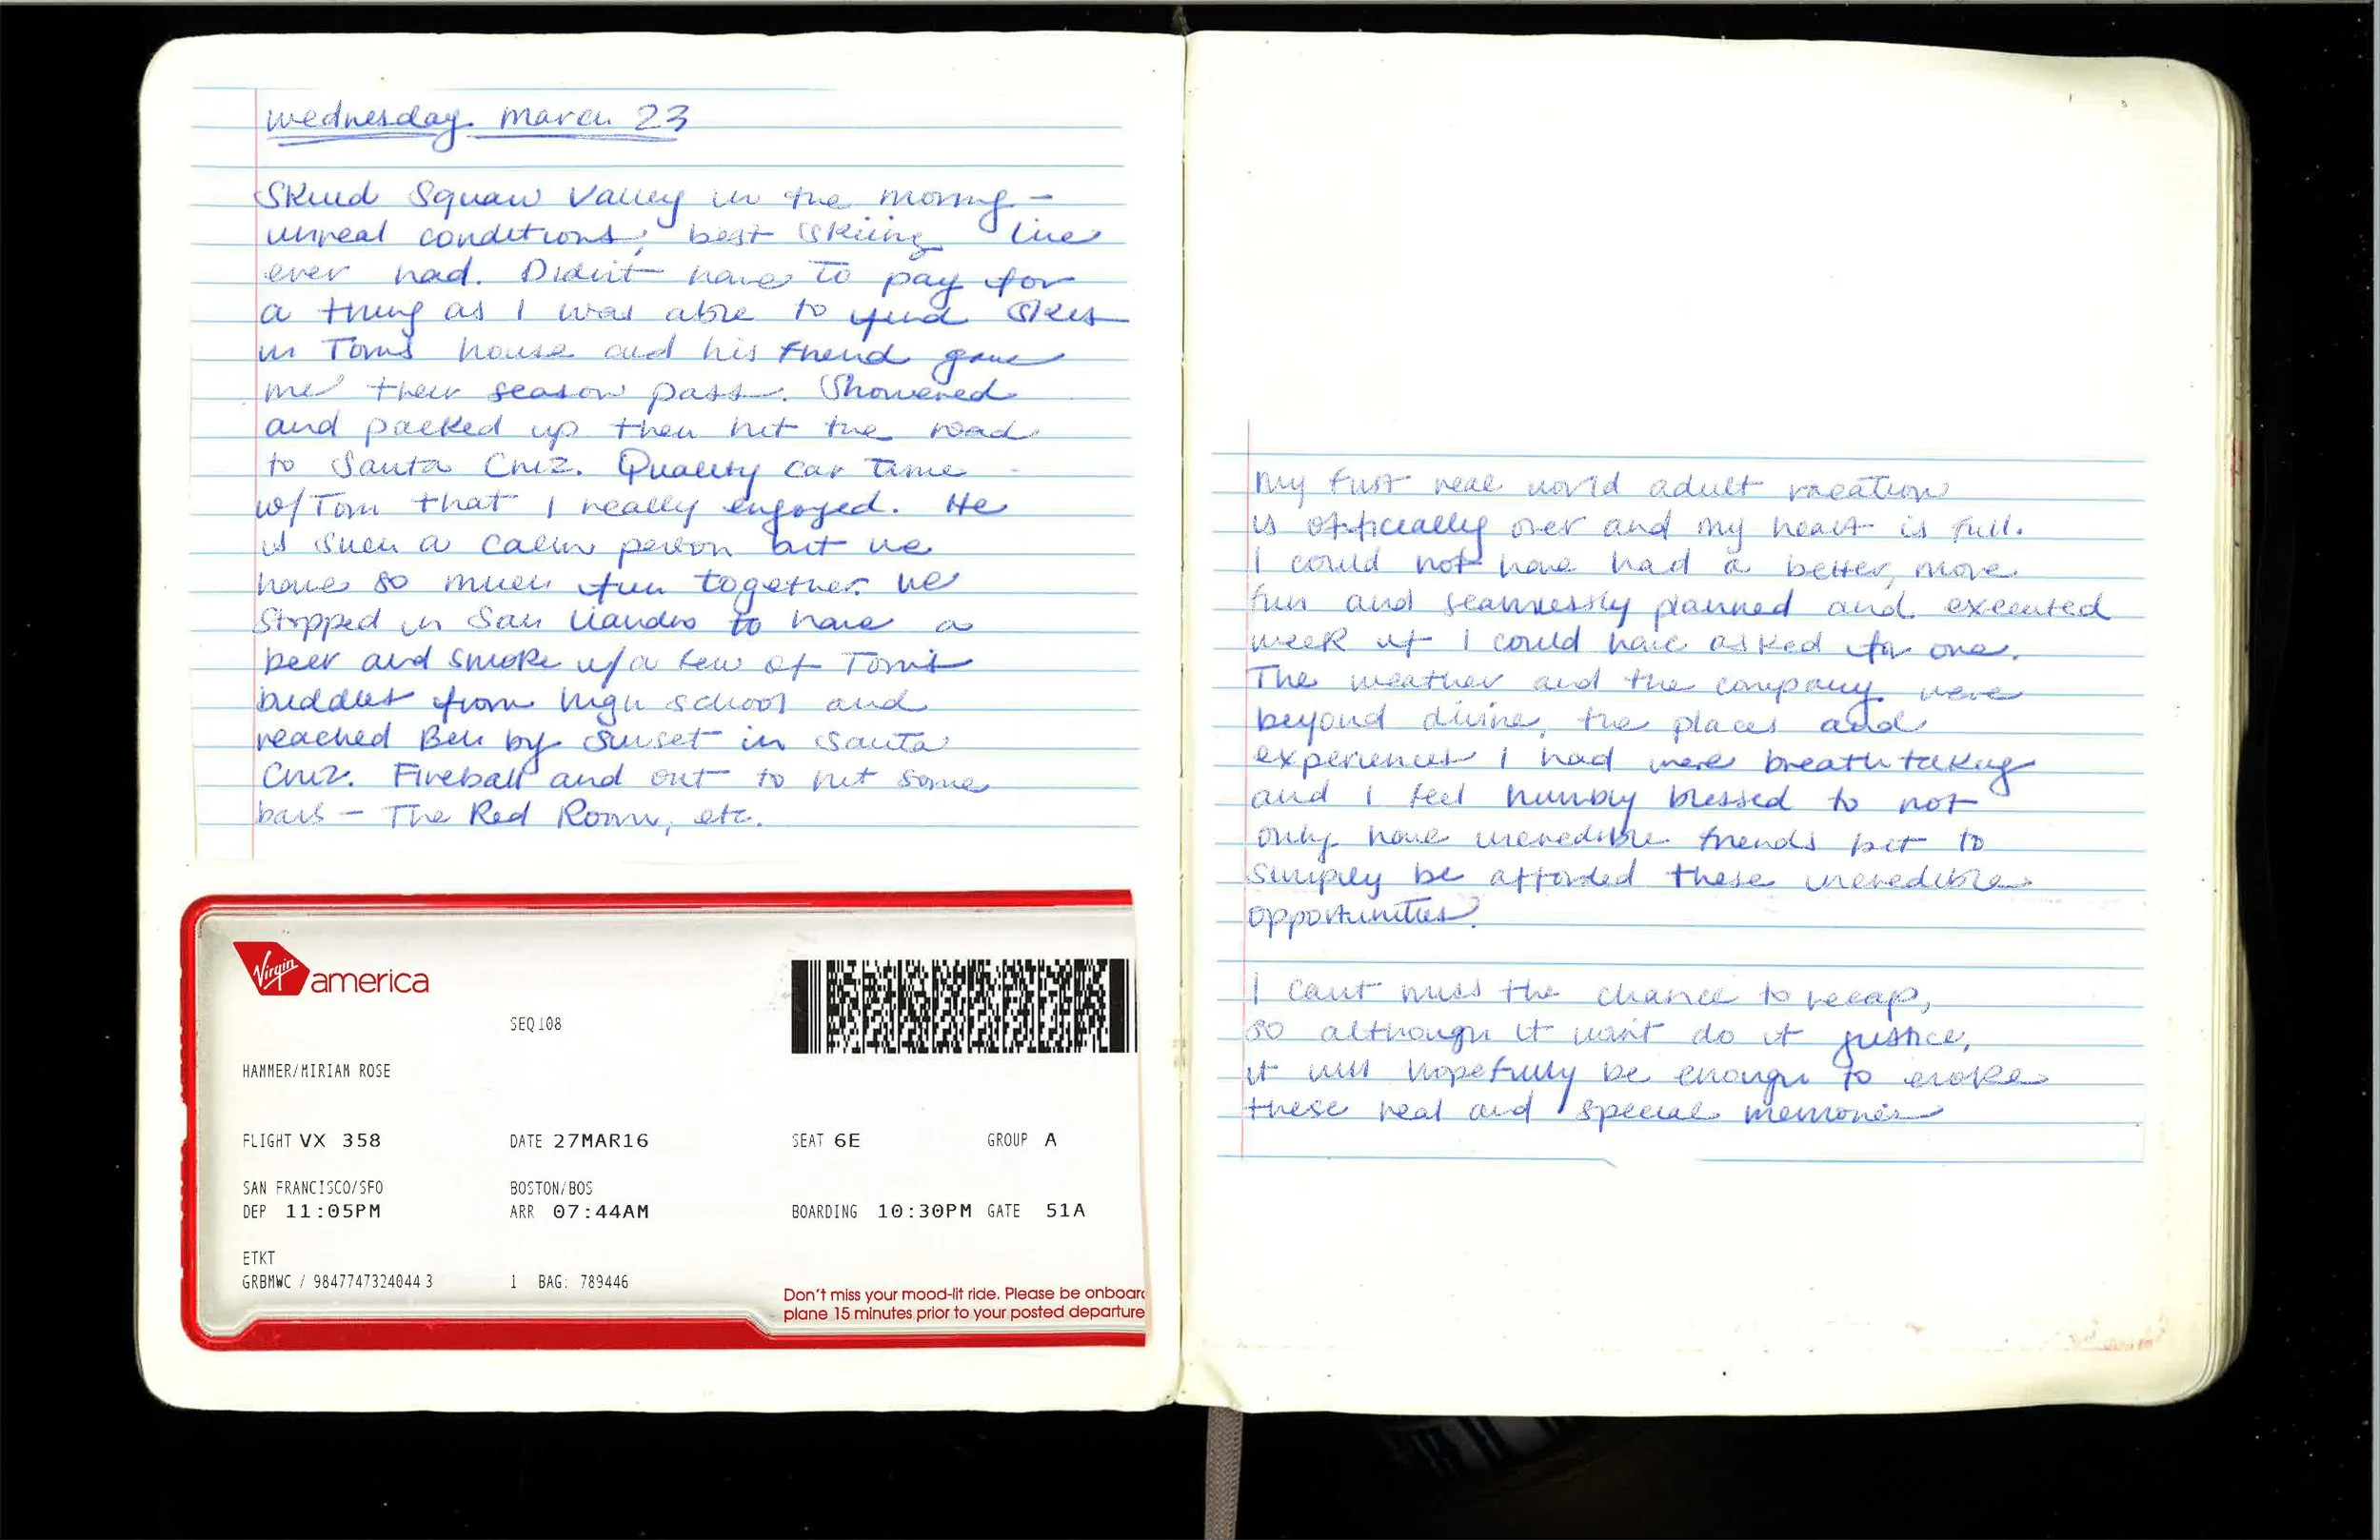 wednesday march 23
Skiied Squaw Valley in the morning -
unreal conditions, best skiing I've
ever had. Didn't have to pay for
a thing as I was able to find skis
in Tom's house and his friend gave
me their season pass. Showered
and packed up then hit the road
to Santa Cruz. Quality car time
w/Tom that I really enjoyed. He
is such a calm person but we
have so much fun together. We
stopped in San Liandro to have a
beer and smoke w/a few of Tom's
buddies from high school and
reached Ben by sunset in Santa
Cruz. Fireball and out to hit some
bars - The Red Room, etc.
Virgin america
SEQ108
HAMMER/MIRIAM ROSE
FLIGHT VX 358 DATE 27MAR16 SEAT 6E GROUP A
SAN FRANCISCO/SFO BOSTON/BOS
DEP 11:05PM ARR 07:44AM BOARDING 10:30PM GATE 51A
ETKT
GRBMWC / 9847747324044 3 1 BAG: 789446
Don't miss your mood-lit ride. Please be onboard
plane 15 minutes prior to your posted departure
My first real world adult vacation
is officially over and my heart is full.
I could not have had a better, more
fun and seamlessly planned and executed
week if I could have asked for one.
The weather and the company were
beyond divine, the places and
experiences I had were breathtaking
and I feel humbly blessed to not
only have incredible friends but to
simply be afforded these incredible
opportunities.
I can't miss the chance to recap,
so although it won't do it justice,
it will hopefully be enough to evoke
these real and special memories